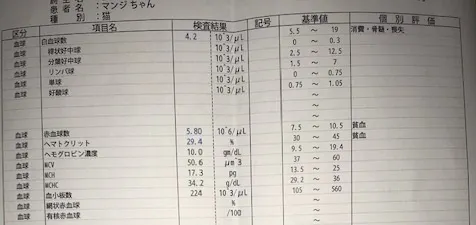 患者名：マンジ ちゃん
種 別：猫
区分 項目名 検査結果 記号 基準値 個別評価
血球 白血球数 4.2 10^3/μL 5.5 ～ 19 消費・骨髄・喪失
血球 桿状好中球 10^3/μL 0 ～ 0.3
血球 分葉好中球 10^3/μL 2.5 ～ 12.5
血球 リンパ球 10^3/μL 1.5 ～ 7
血球 単球 10^3/μL 0 ～ 0.75
血球 好酸球 10^3/μL 0.75 ～ 1.05
～
～
～
血球 赤血球数 5.80 10^6/μL 7.5 ～ 10.5 貧血
血球 ヘマトクリット 29.4 % 30 ～ 45 貧血
血球 ヘモグロビン濃度 10.0 gm/dL 9.5 ～ 19.4
血球 MCV 50.6 μm^3 37 ～ 60
血球 MCH 17.3 pg 13.5 ～ 25
血球 MCHC 34.2 g/dL 29.2 ～ 36
血球 血小板数 224 10^3/μL 105 ～ 560
血球 網状赤血球 % ～
血球 有核赤血球 /100 ～